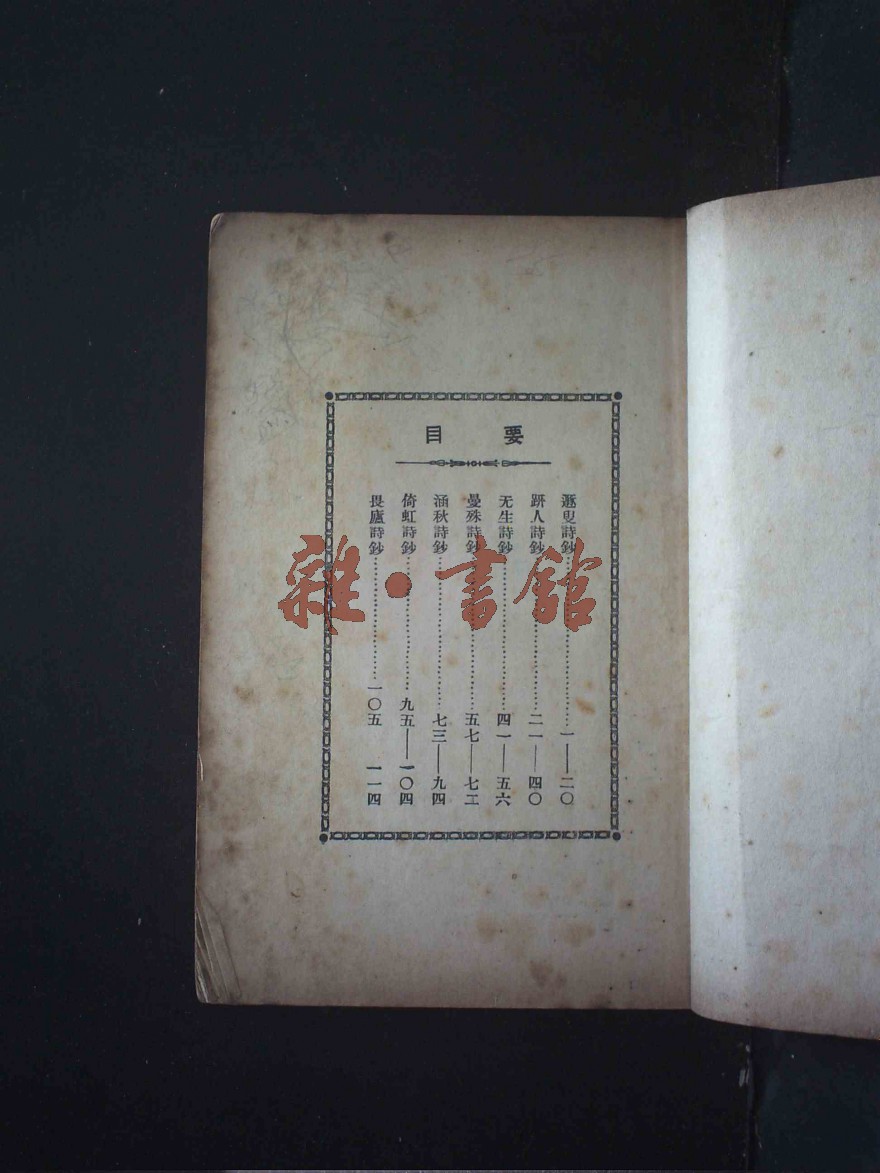 要目
遯叟詩鈔…………一——二〇
趼人詩鈔…………二一——四〇
无生詩鈔…………四一——五六
曼殊詩鈔…………五七——七二
涵秋詩鈔…………七三——九四
倚虹詩鈔…………九五——一〇四
畏廬詩鈔…………一〇五 一一四
雜·書館